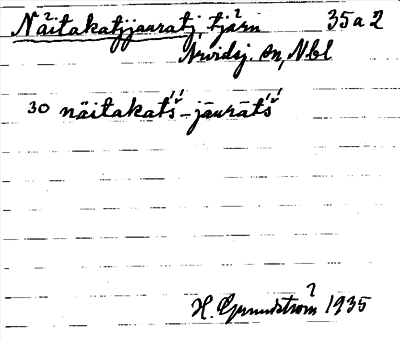 Näitakatjjauratj, tjärn 35 a 2
Arvidsj. sn, Nbl
30 näitakatś-jāurātś
H. Grundström 1935